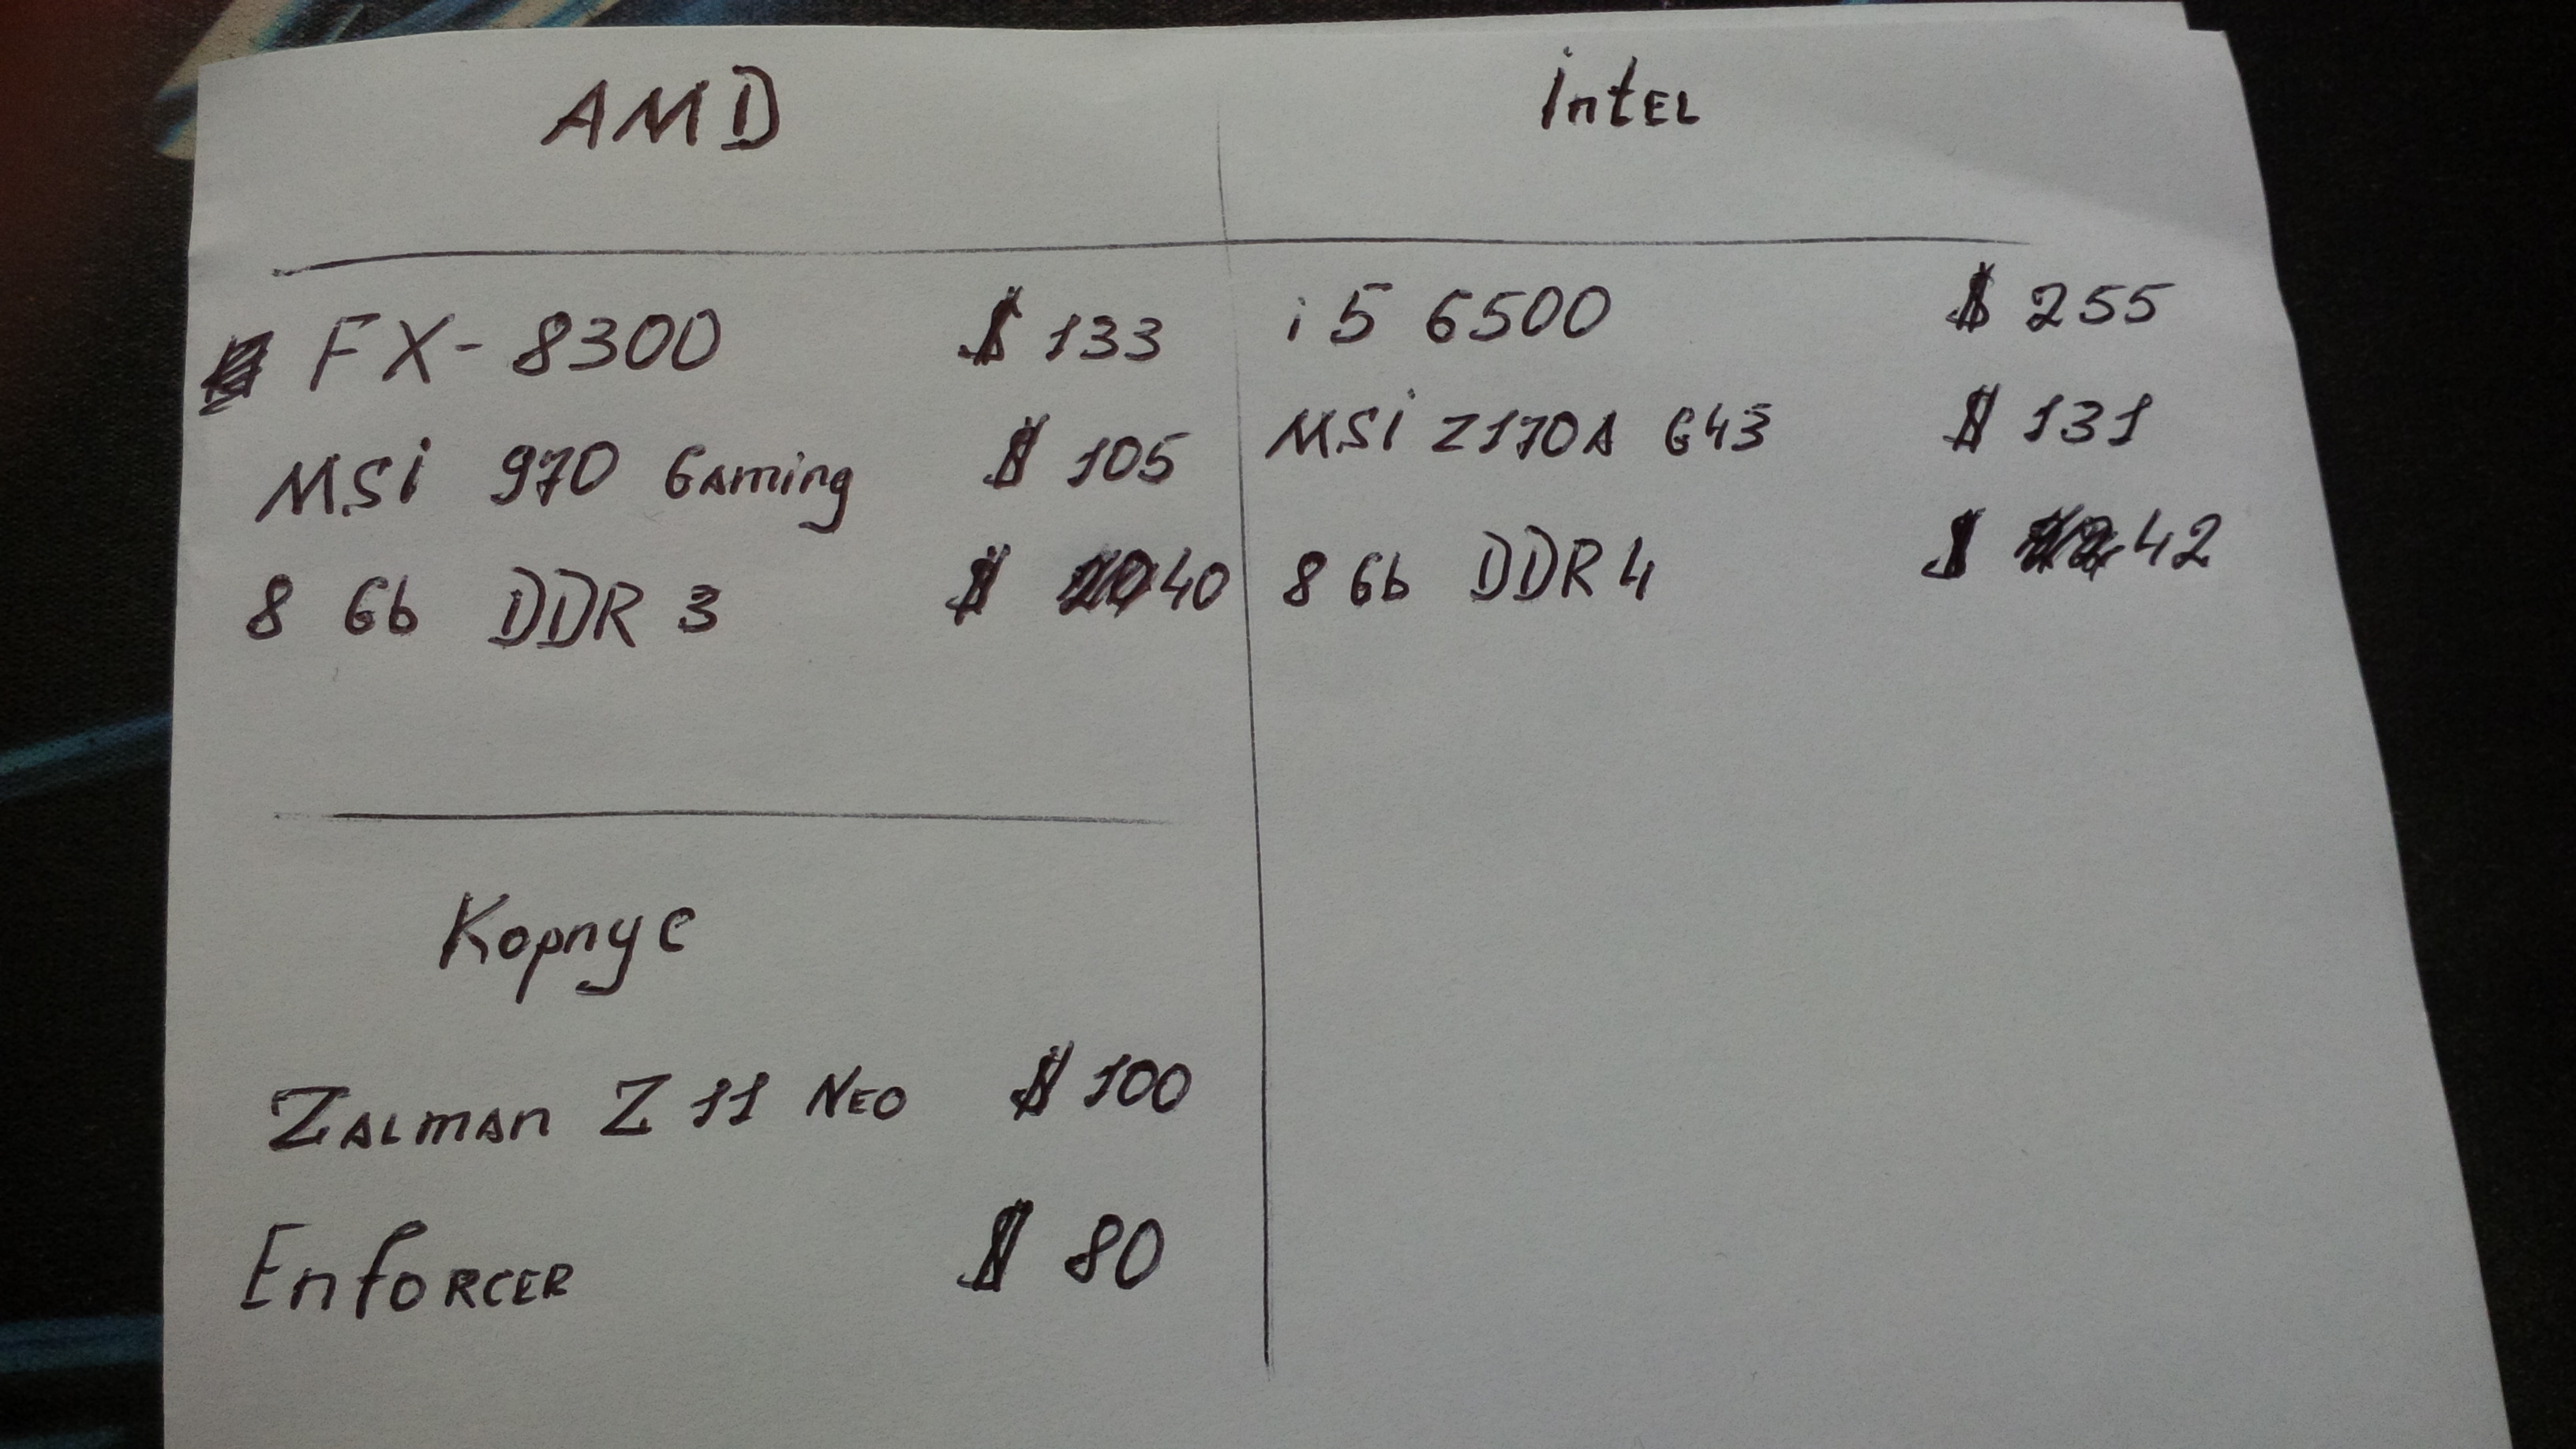 AMD
FX-8300 $ 133
MSi 970 Gaming $ 105
8 Gb DDR 3 $ 40
Корпус
Zalman Z 11 Neo $ 100
Enforcer $ 80
intel
i5 6500 $ 255
MSi Z170A G43 $ 131
8 Gb DDR 4 $ 42